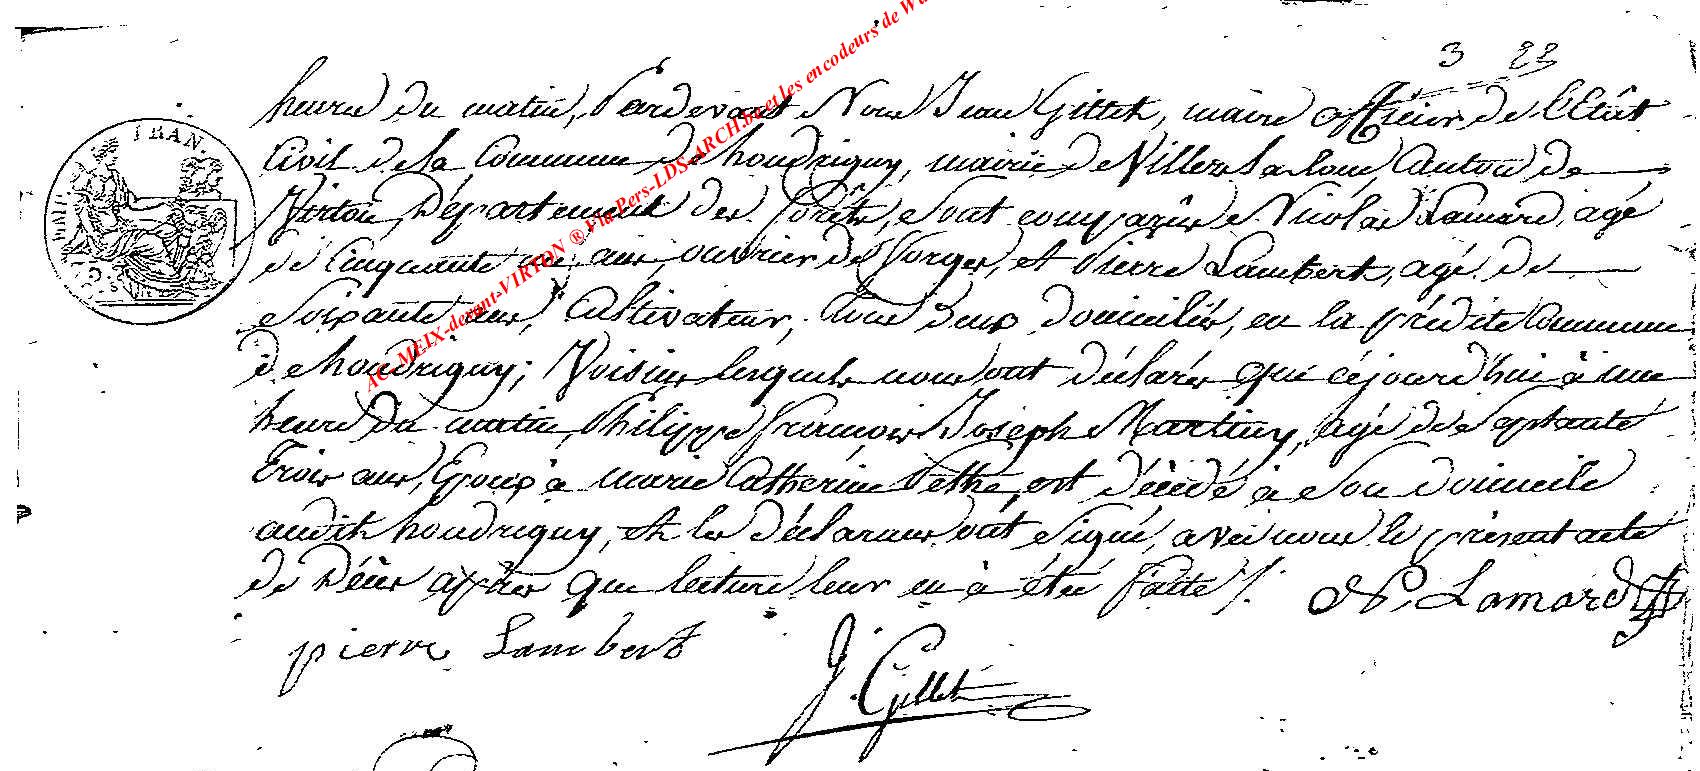 3 22
heure du matin, Pardevant Nous Jean Gillet, maire officier de l'Etât
Civil de la Commune de houdrigny, mairie de Villers la loue, Canton de
Virton, Département des forêts, sont comparûs Nicolas Lamard, agé
de Cinquante un ans, ouvrier de forges, et Pierre Lambert, agé de
Soixante ans, Cultivateur, tous deux domiciliés, en la prédite Commune
de houdrigny; Voisins lesquels nous ont déclarés que cejourd'hui à une
heure du matin, Philippe françois Joseph Martiny, agé de Septante
Trois ans, Epoux à marie Catherine Pethe, est décédé à son domicile
audit houdrigny, et les déclarans ont signé, avec nous le présent acte
de Décès après que lecture leur en à étée faite /.
N. Lamard
pierre Lambert
J. Gillet
AC. MEIX-devant-VIRTON ® Via Pers-LDS-ARCH.be et les encodeurs de
FRAN.